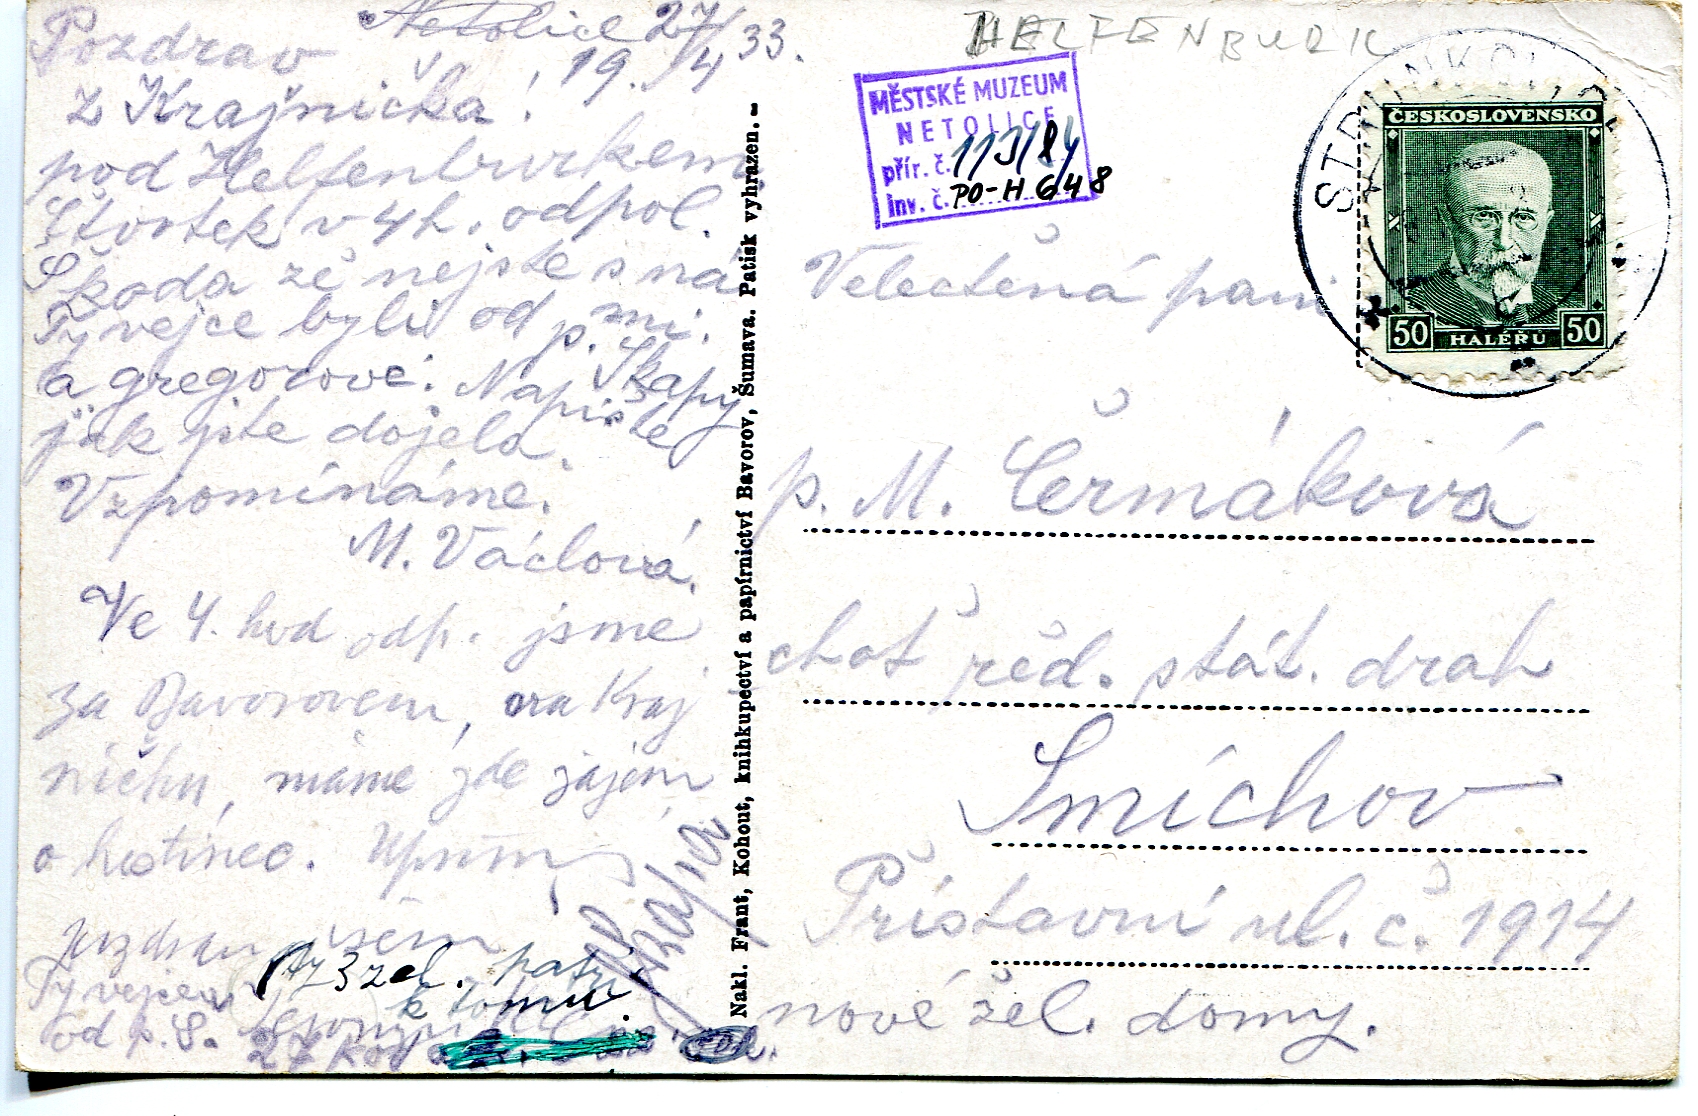 Netolice 27/4 33.
Pozdrav 19./4
z Krajníčka!
pod Helfenburkem
čtvrtek v 4 h. odpol.
Škoda že nejste s ná
Ty vejce byli od p.
a gregorové. Napište
jak jste dojela.
Vzpomínáme.
M. Václová.
Ve 4. hod odp. jsme
za Bavorovem, na Kraj
níčku, máme zde zájem
o hostinec. Upřím
pozdrav všem
Ty vejce
od p. S.
Ty 3 zel. patř
k tomu.
Nakl. Frant, Kohout, knihkupectví a papírnictví Bavorov, Šumava. Patisk vyhrazen. -
HELFENBURK
MĚSTSKÉ MUZEUM
NETOLICE
přír. č. 113/84
inv. č. PO-H 648
ČESKOSLOVENSKO
50 HALÉŘŮ 50
Velectěná paní
p. M. Čermáková
choť řed. stát. drah
Smíchov
Přístavní ul. č. 1914
nové žel. domy.